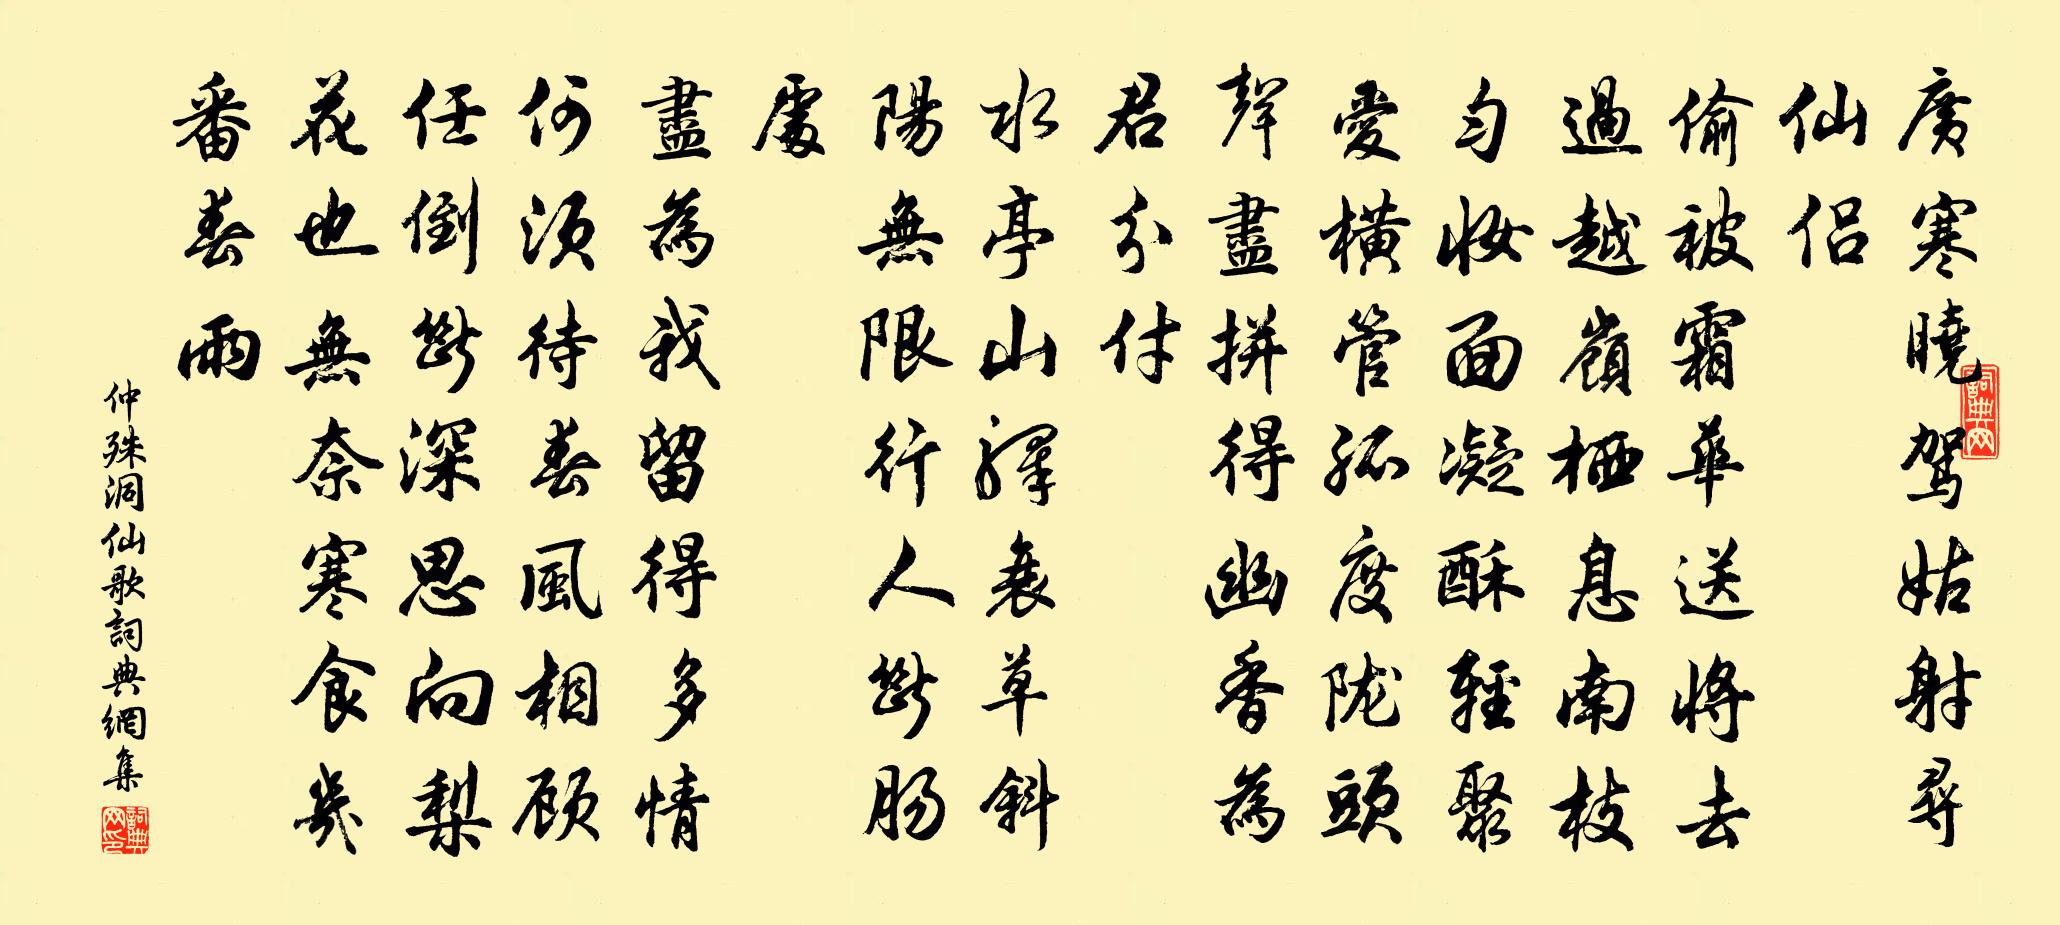 廣寒曉駕姑射尋
仙侣
偷被霜華送將去
過越嶺栖息南枝
匀妝面凝酥輕聚
愛橫管孤度隴頭
聲盡拼得幽香為
君分付
水亭山驛衰草斜
陽無限行人斷腸
處
盡為我留得多情
何須待春風相顧
任倒斷深思向梨
花也無奈寒食幾
番春雨
仲殊洞仙歌詞典網集
詞典网
詞典网印